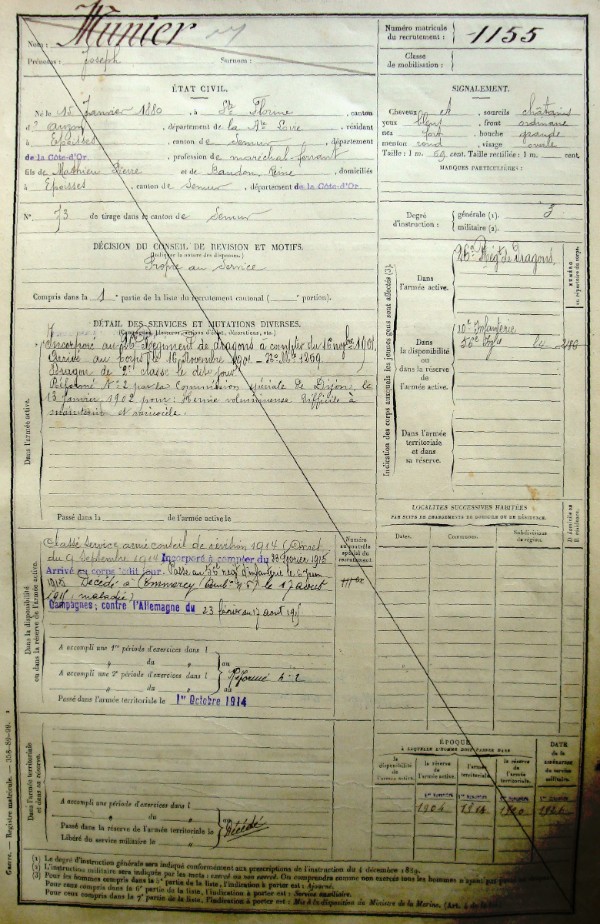 Nom : Munier
Prénoms : Joseph Surnom :
Numéro matricule du recrutement : 1155
Classe de mobilisation :
ÉTAT CIVIL.
Né le 15 Janvier 1880, à Ste Florine, canton
d'Auzon, département de la Hte Loire, résidant
à Epoisses, canton de Semur, département
de la Côte-d'Or, profession de maréchal-ferrant
fils de Mathieu Pierre et de , domiciliés
à Epoisses, canton de Semur, département de la Côte-d'Or.
N° 73 de tirage dans le canton de Semur
SIGNALEMENT.
Cheveux , sourcils châtains
yeux bleus, front ordinaire
nez fort, bouche grande
menton rond, visage ovale
Taille : 1 m. 69 cent. Taille rectifiée : 1 m. cent.
MARQUES PARTICULIÈRES :
Degré d'instruction : générale (1). 3
militaire (2).
DÉCISION DU CONSEIL DE REVISION ET MOTIFS.
Propre au service
Compris dans la 1e partie de la liste du recrutement cantonal ( portion).
DÉTAIL DES SERVICES ET MUTATIONS DIVERSES.
Incorporé au 26e Régiment de dragons à compter du 16 nov. 1901.
Arrivé au Corps le 16 Novembre 1901 - No Mle 1269
Dragon de 2e classe le dit jour
Réformé No 2 par la Commission spéciale de Dijon, le
13 janvier 1902 pour : Hernie volumineuse difficile à
maintenir
Dans l'armée active.
Passé dans la de l'armée active le
Indication des corps auxquels les jeunes gens sont affectés (3).
NUMÉRO au répertoire du corps.
Dans l'armée active.
26e Régt de Dragons
Dans la disponibilité ou dans la réserve de l'armée active.
10e Infanterie
56e Inf
Dans l'armée territoriale et dans sa réserve.
LOCALITÉS SUCCESSIVES HABITÉES
PAR SUITE DE CHANGEMENTS DE DOMICILE OU DE RÉSIDENCE.
Dates. Communes. Subdivisions de région. D domicile ou R résidence.
Dans la disponibilité ou dans la réserve de l'armée active.
Numéro au contrôle spécial du recrutement.
Classé service armé conseil de révision 1914 (Décret
du 9 Septembre 1914 Incorporé à compter du 23 février 1915
Arrivé au corps ledit jour. Passé au 56e regt d'infanterie le 6 juin
1915. Décédé à Commercy le 17 août
1915 (maladie)
Campagnes: contre l'Allemagne du 23 février au 17 août 1915
A accompli une 1re période d'exercices dans l
du au
A accompli une 2e période d'exercices dans l
du au
Réformé No 2
Passé dans l'armée territoriale le 1er Octobre 1914
Dans l'armée territoriale et dans sa réserve.
A accompli une période d'exercices dans l
du au
Passé dans la réserve de l'armée territoriale le
Libéré du service militaire le
Décédé
ÉPOQUE
À LAQUELLE L'HOMME DOIT PASSER DANS
la disponibilité de l'armée active. la réserve de l'armée active. l'armée territoriale. la réserve de l'armée territoriale.
DATE de la libération du service militaire.
1904 1914 1920 1926
Canson. — Registre matricule. — 358-89-98.
(1) Le degré d'instruction générale sera indiqué conformément aux prescriptions de l'instruction du 4 décembre 1889.
(2) L'instruction militaire sera indiquée par les mots : exercé ou non exercé.
(3) Pour les hommes compris dans la 5e partie de la liste, l'indication à porter est : Ajourné.
Pour ceux compris dans la 6e partie de la liste, l'indication à porter est : Service auxiliaire.
Pour ceux compris dans la 7e partie de la liste, l'indication à porter est : Mis à la disposition du Ministre de la Marine.